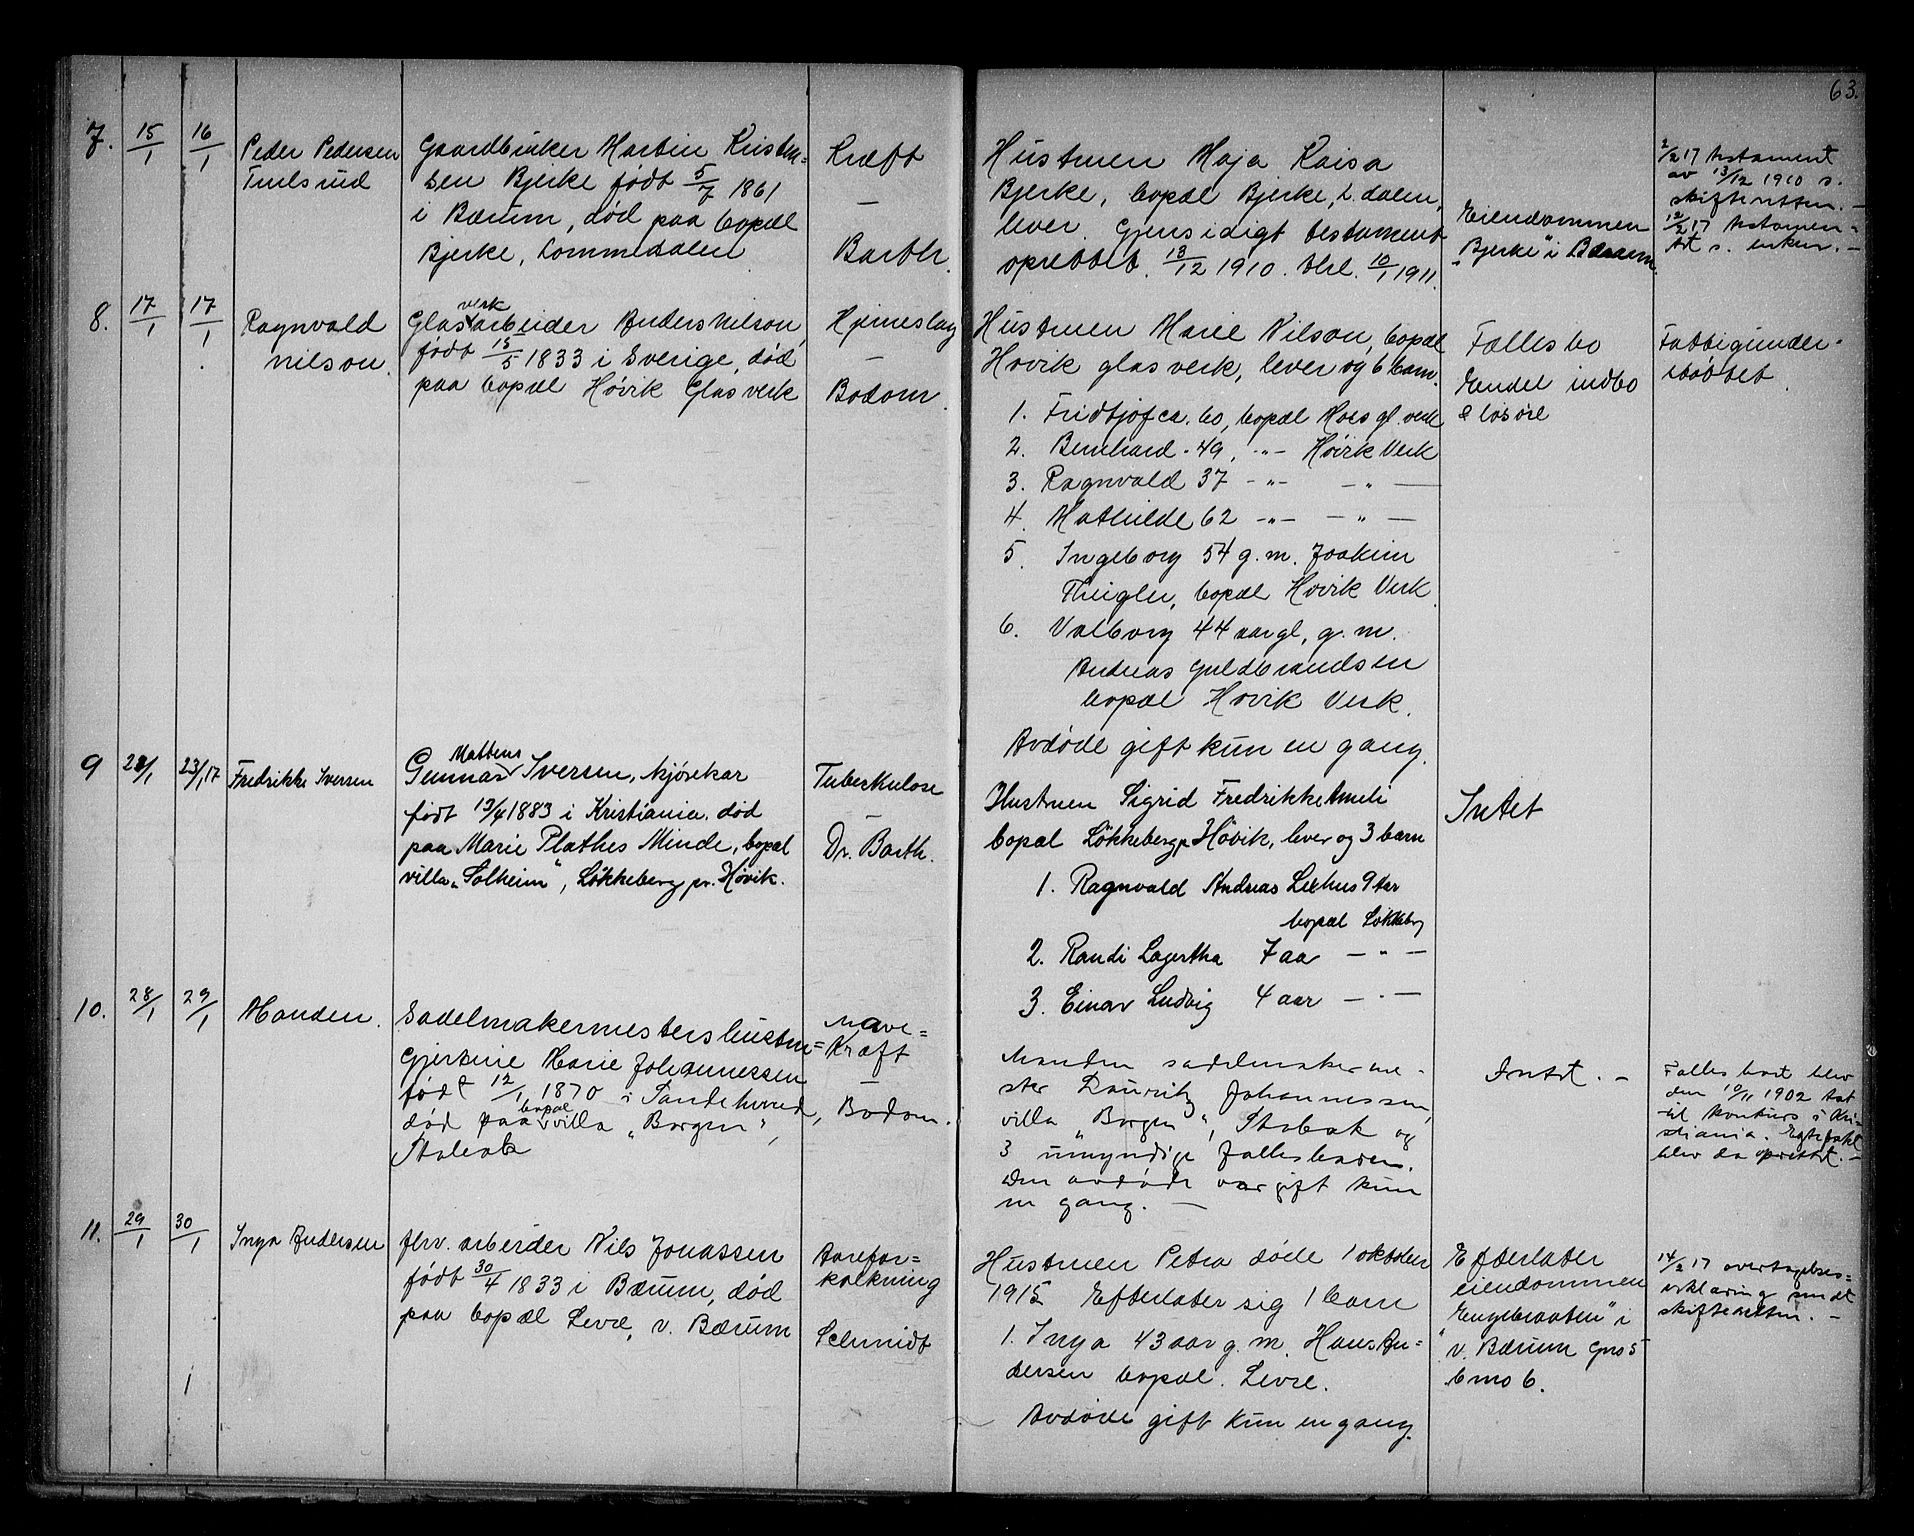 63.
7. 15/1 16/1 Peder Pedersen
Gaardbruker Martin Kristen=
sen Bjerke født 5/7 1861
i Bærum, død paa bopæl
Bjerke, Lommedalen
Kræft
—
Barth.
Hustruen Maja Kaisa
Bjerke, bopæl Bjerke, L.dalen,
lever. Gjensidigt testament
oprettet 13/12 1910. thl. 10/1 1911.
Eiendommen
"Bjerke" i Bærum.
2/2 17 testament
av 13/12 1910 s.
skifteretten. —
12/2 17 testamen-
tet s. enken. —
8. 17/1 17/1 Ragnvald
Nilson.
Glasverkarbeider Anders Nilson,
født 15/5 1833 i Sverige, død
paa bopæl Høvik Glasverk
Hjerneslag
—
Bodom.
Hustruen Marie Nilson, bopæl
Høvik glasverk, lever og 6 barn.
1. Fridtjof ca. 60, bopæl Moss gl.verk
2. Bernhard - 49, -"- Høvik Verk
3. Ragnvald 37 -"- -"-
4. Mathilde 62 -"- -"-
5. Ingeborg 54 g.m. Joakim
bopæl Høvik Verk.
6. Valborg 44 aar gl, g.m.
Andreas Guldbrandsen
bopæl Høvik Verk.
Avdøde gift kun en gang.
Fællesbo
Endel indbo
& løsøre
Fattigunder-
støttet.
9 22/1 23/1 17 Fredrikke Iversen
Gunnar Mattens Iversen, kjørekar
født 13/4 1883 i Kristiania. død
paa Marie Plathes Minde, bopæl
villa "Solheim", Løkkeberg pr. Høvik.
Tuberkulose
—
Dr. Barth.
Hustruen Sigrid Fredrikke Ameli
bopæl Løkkeberg pr Høvik, lever og 3 barn
1. Ragnvald Andreas 9 aar
bopæl Løkkeberg
2. Randi Lagertha 7 aar — " —
3. Einar Ludvig 4 aar — " —
Intet
10. 28/1 29/1 Manden.
Sadelmakermesters hustru
Gjertine Marie Johannessen
født 12/1 1870 i Sandeherred,
død paa bopæl villa "Borgen",
Stabæk
Mave=
kræft
—
Bodom.
Manden sadelmakerme-
ster Lauritz Johannessen,
villa "Borgen", Stabæk og
3 umyndige fællesbarn.
Den avdøde var gift kun
en gang. —
Intet. —
Fællesboet blev
den 10/11 1902 tat
til konkurs i Kri=
stiania. Egtepakt
blev da oprettet. —
11. 29/1 30/1 Inga Andersen
fhv. arbeider Nils Jonassen
født 30/4 1833 i Bærum, død
paa bopæl Levre, v. Bærum
Aarefor=
kalkning
Schmidt
Hustruen Petra døde 1 oktober
1915 Efterlater sig 1 barn
1. Inga 43 aar g.m. Hans An=
dersen bopæl. Levre.
Avdøde gift kun en gang.
Efterlater
eiendommen
"Engebraaten" i
v. Bærum gno 5
bno 6.
14/2 17 overtagelses=
erklæring sendt
skifteretten. —